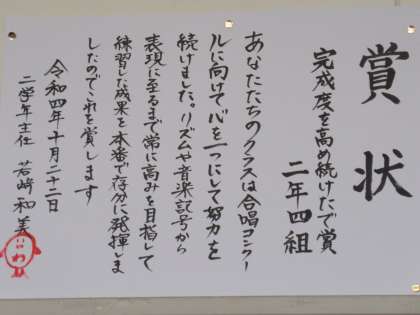 賞状
完成度を高め続けたで賞
二年四組
あなたたちのクラスは合唱コンクー
ルに向けて心を一つにして努力を
続けました。リズムや音楽記号から
表現に至るまで常に高みを目指して
練習した成果を本番で存分に発揮しま
したのでこれを賞します
令和四年十月二十二日
二学年主任 若崎和美